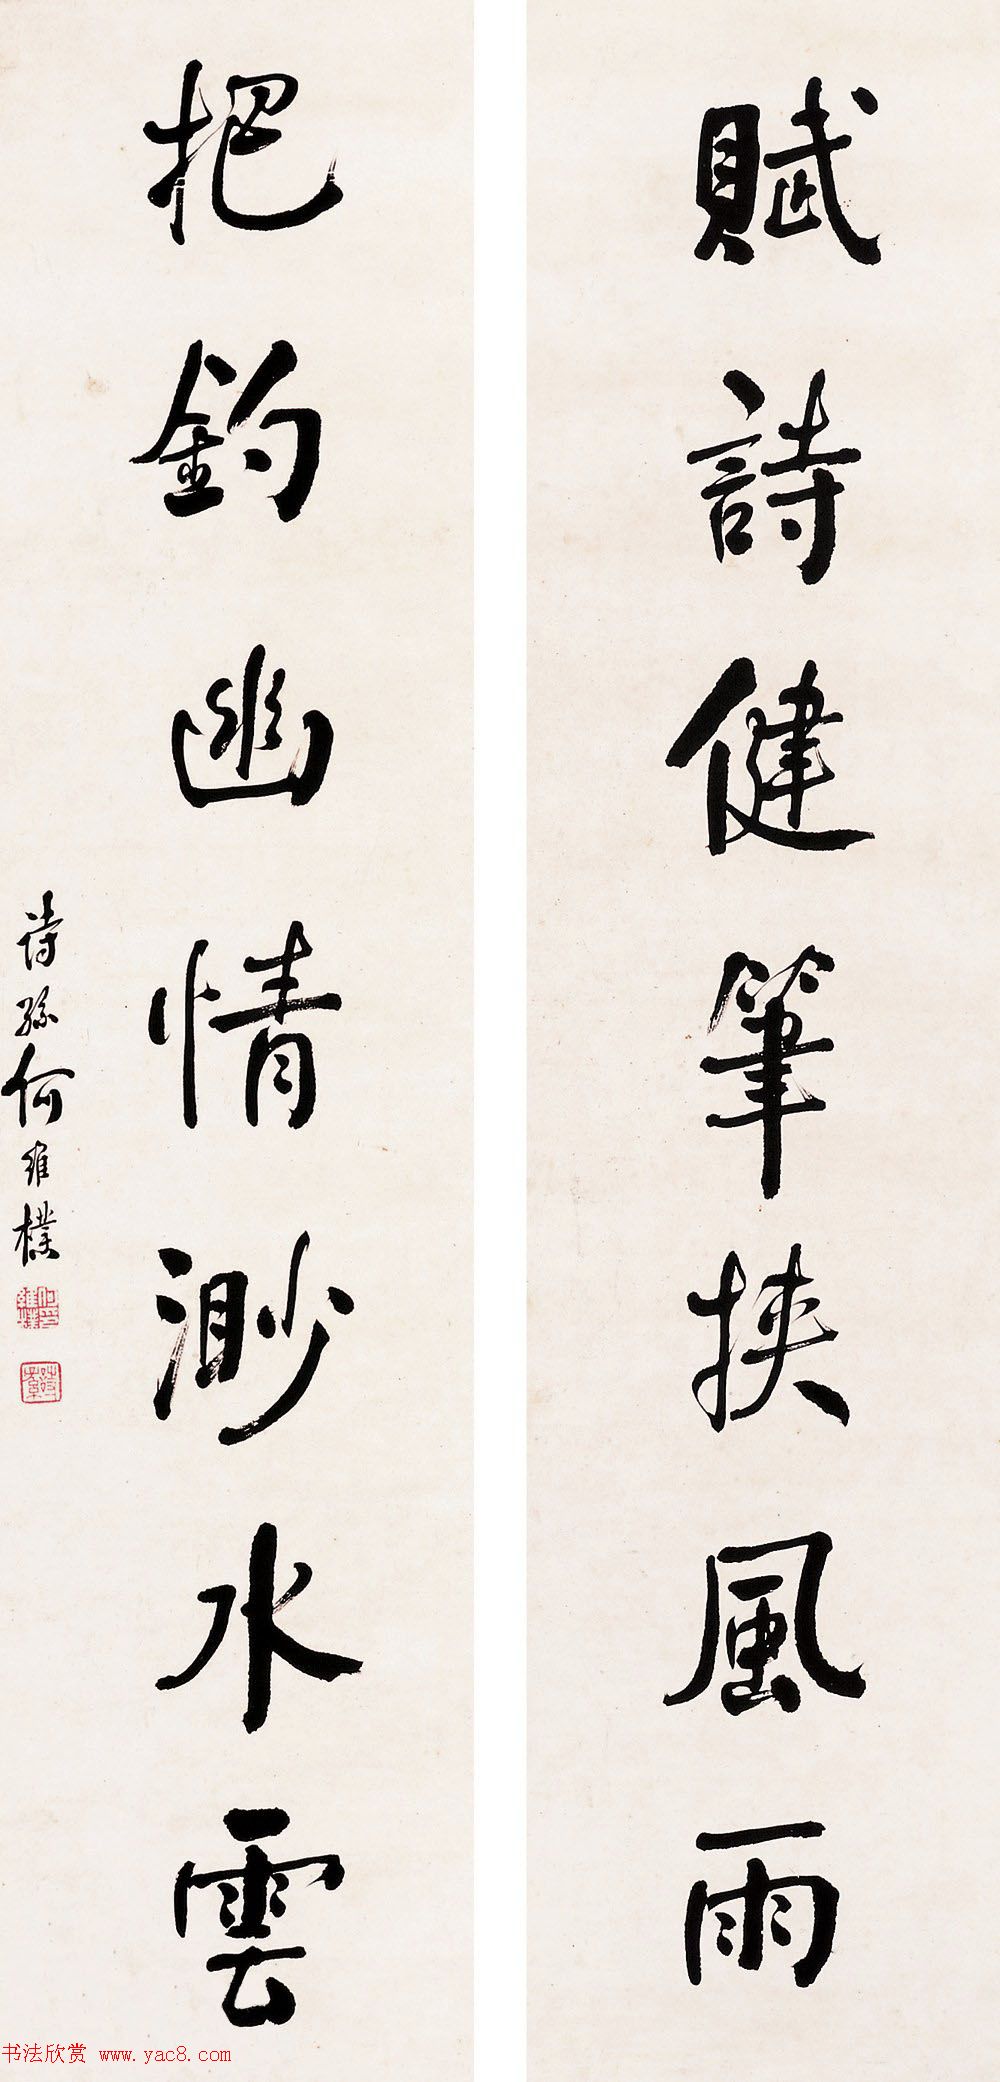 賦詩健筆挾風雨
把釣幽情渺水雲
詩孫何維樸
书法欣赏 www.yac8.com